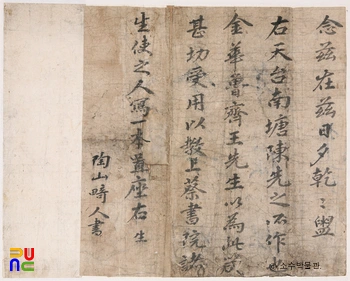 念茲在茲日夕乾乾 盥
右天台南塘陳先之所作也
金華魯濟王先生以為此箴
甚切受用以教上蔡書院諸
生使之人寫一本置座右 生
陶山畸人書
소수박물관